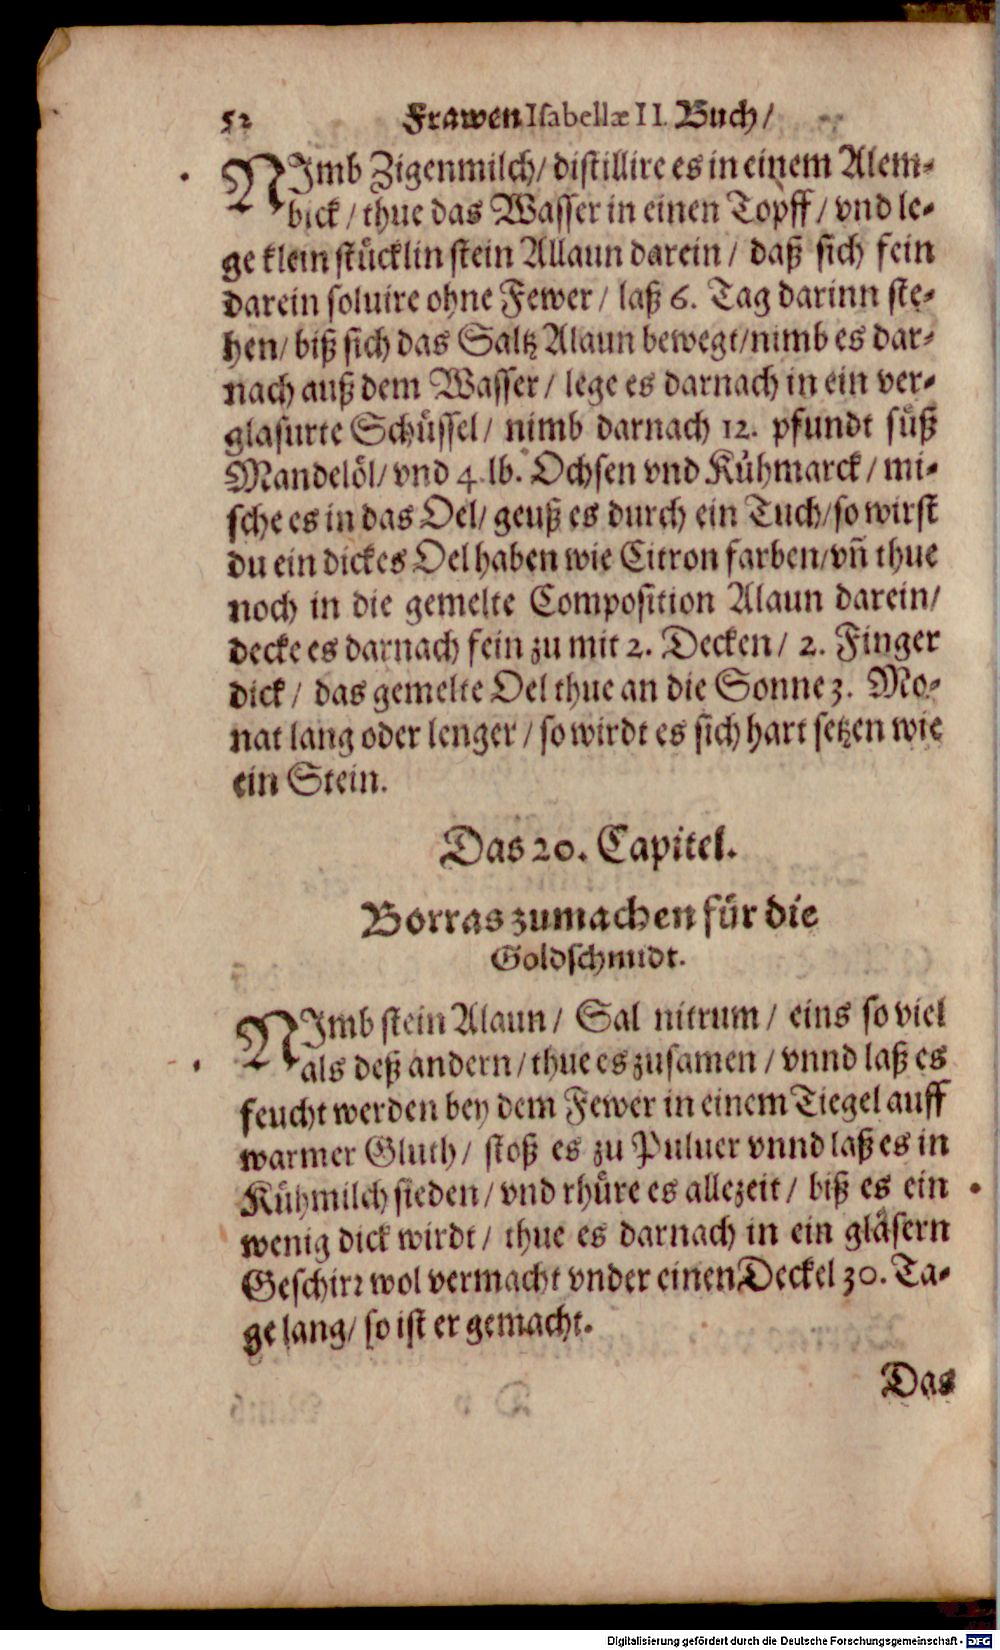 52 Frawen Isabellæ II. Buch/
NImb Zigenmilch/ distillire es in einem Alem-
bick/ thue das Wasser in einen Topff/ vnd le-
ge klein stücklin stein Allaun darein/ daß sich fein
darein soluire ohne Fewer/ laß 6. Tag darinn ste-
hen/ biß sich das Saltz Alaun bewegt/ nimb es dar-
nach auß dem Wasser/ lege es darnach in ein ver-
glasurte Schüssel/ nimb darnach 12. pfundt süß
Mandelöl/ vnd 4. lb. Ochsen vnd Kühmarck/ mi-
sche es in das Oel/ geuß es durch ein Tuch/ so wirst
du ein dickes Oel haben wie Citron farben/ vñ thue
noch in die gemelte Composition Alaun darein/
decke es darnach fein zu mit 2. Decken/ 2. Finger
dick/ das gemelte Oel thue an die Sonne 3. Mo-
nat lang oder lenger/ so wirdt es sich hart setzen wie
ein Stein.
Das 20. Capitel.
Borras zumachen für die
Goldschmidt.
NImb stein Alaun/ Sal nitrum/ eins so viel
als deß andern/ thue es zusamen/ vnnd laß es
feucht werden bey dem Fewer in einem Tiegel auff
warmer Gluth/ stoß es zu Puluer vnnd laß es in
Kühmilch sieden/ vnd rhüre es allezeit/ biß es ein
wenig dick wirdt/ thue es darnach in ein gläsern
Geschirr wol vermacht vnder einen Deckel 30. Ta-
ge lang/ so ist er gemacht.
Das
Digitalisierung gefördert durch die Deutsche Forschungsgemeinschaft - DFG